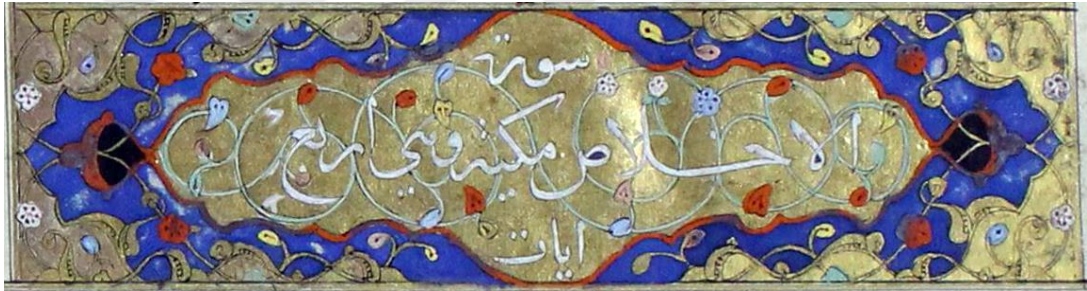 سورة
الاخلاص مكية وهي اربع
ايات